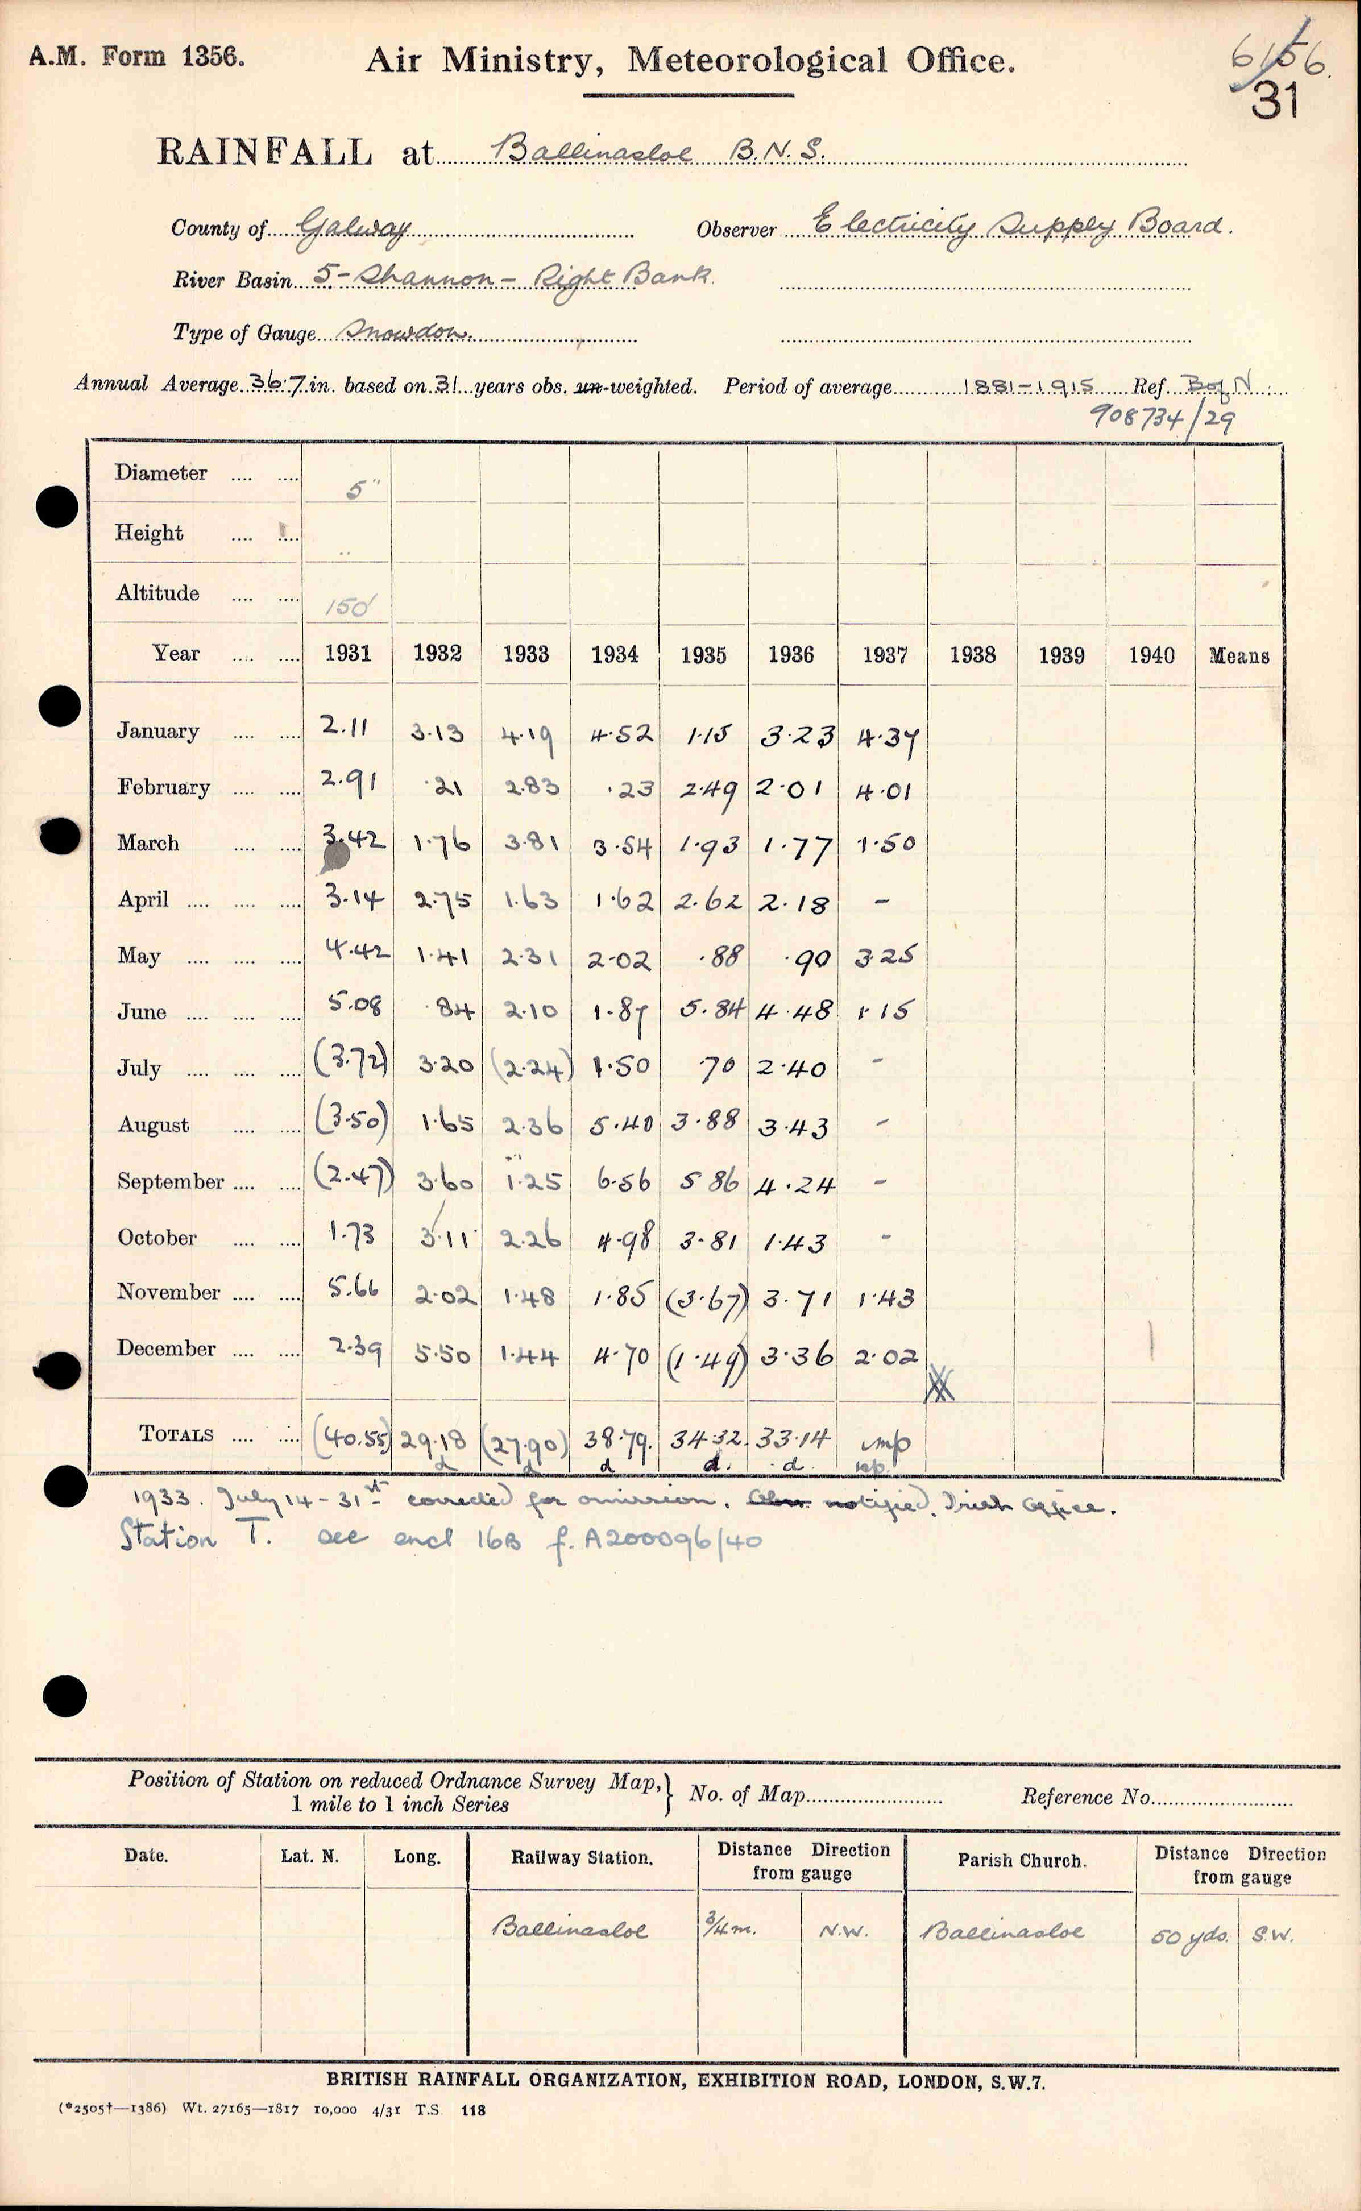 A.M. Form 1356. Air Ministry, Meteorological Office. 6156.
31
RAINFALL at Ballinasloe B.N.S.
County of Galway Observer Electricity Supply Board.
River Basin 5 - Shannon - Right Bank.
Type of Gauge Snowdon.
Annual Average 36.7 in. based on 31 years obs. un-weighted. Period of average 1881-1915 Ref. B of N
908734/29
Diameter .... .... 5"
Height .... ....
Altitude .... .... 150'
Year .... .... 1931 1932 1933 1934 1935 1936 1937 1938 1939 1940 Means
January .... .... 2.11 3.13 4.19 4.52 1.15 3.23 4.37
February .... .... 2.91 .21 2.83 .23 2.49 2.01 4.01
March .... .... 3.42 1.76 3.81 3.54 1.93 1.77 1.50
April .... .... .... 3.14 2.75 1.63 1.62 2.62 2.18 -
May .... .... .... 4.42 1.41 2.31 2.02 .88 .90 3.25
June .... .... .... 5.08 .84 2.10 1.87 5.84 4.48 1.15
July .... .... .... (3.72) 3.20 (2.24) 1.50 .70 2.40 -
August .... .... (3.50) 1.65 2.36 5.40 3.88 3.43 -
September .... .... (2.47) 3.60 1.25 6.56 5.86 4.24 -
October .... .... 1.73 3.11 2.26 4.98 3.81 1.43 -
November .... .... 5.66 2.02 1.48 1.85 (3.67) 3.71 1.43
December .... .... 2.39 5.50 1.44 4.70 (1.49) 3.36 2.02
TOTALS .... .... (40.55) 29.18 (27.90) 38.79. 34.32. 33.14 imp
d d d d. d.
1933. July 14 - 31st corrected for omission. notified. Irish Office.
Station T. see encl 16B f. A200096/40
Position of Station on reduced Ordnance Survey Map, } No. of Map.... Reference No....
1 mile to 1 inch Series
Date. Lat. N. Long. Railway Station. Distance Direction from gauge Parish Church. Distance Direction from gauge
Ballinasloe 3/4 m. N.W. Ballinasloe 50 yds. S.W.
BRITISH RAINFALL ORGANIZATION, EXHIBITION ROAD, LONDON, S.W.7.
(*2505†—1386) Wt. 27165—1817 10,000 4/31 T.S. 118